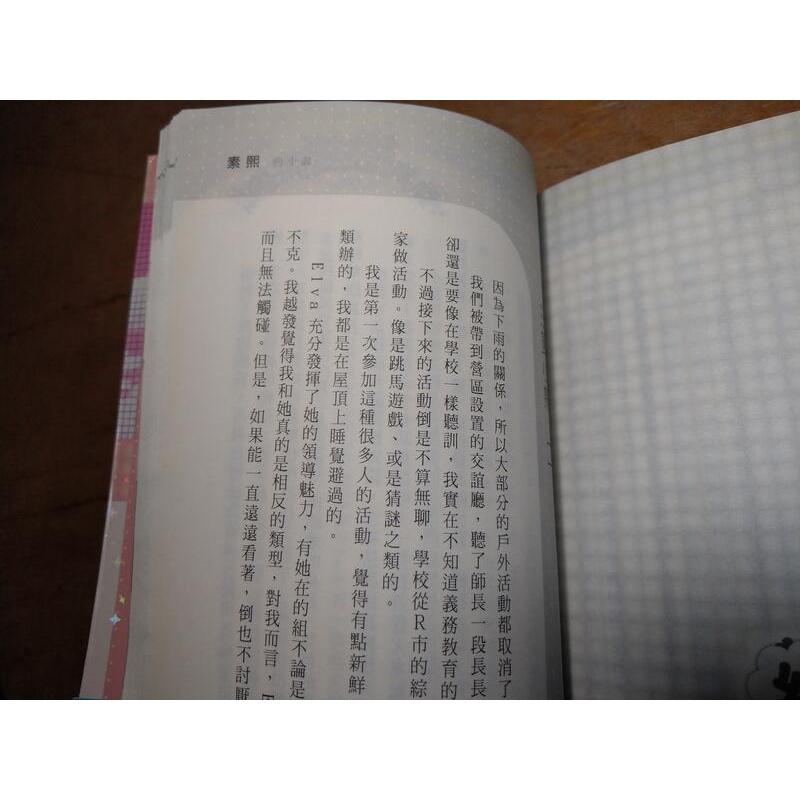 素熙 的小說
因為下雨的關係，所以大部分的戶外活動都取消了
我們被帶到營區設置的交誼廳，聽了師長一段長長
卻還是要像在學校一樣聽訓，我實在不知道義務教育的
不過接下來的活動倒是不算無聊，學校從R市的綜
家做活動。像是跳馬遊戲、或是猜謎之類的。
我是第一次參加這種很多人的活動，覺得有點新鮮
類辦的，我都是在屋頂上睡覺避過的。
Elva 充分發揮了她的領導魅力，有她在的組不論是
不克。我越發覺得我和她真的是相反的類型，對我而言，E
而且無法觸碰。但是，如果能一直遠遠看著，倒也不討厭